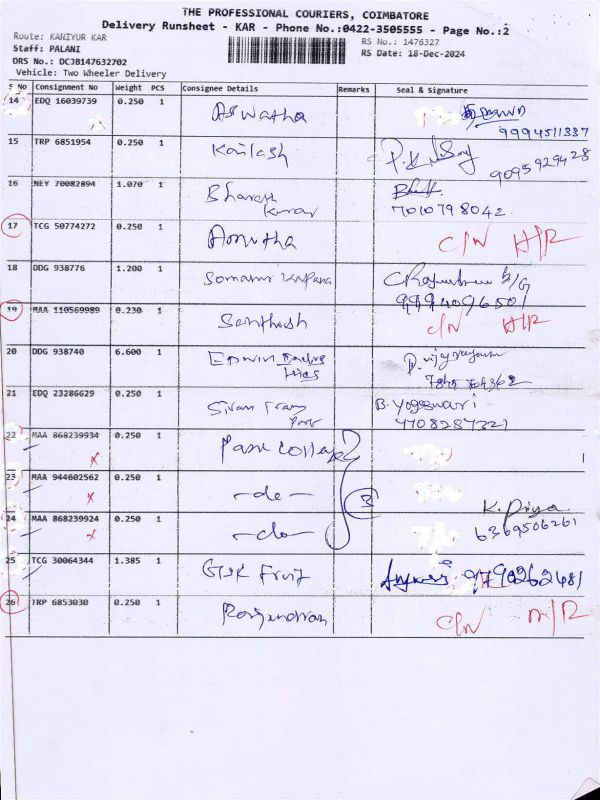 THE PROFESSIONAL COURIERS, COIMBATORE
Delivery Runsheet - KAR - Phone No.:0422-3505555 - Page No.:2
Route: KANIYUR KAR
RS No.: 1476327
Staff: PALANI
RS Date: 18-Dec-2024
DRS No.: DCJB147632702
Vehicle: Two Wheeler Delivery
S No Consignment No Weight PCS Consignee Details Remarks Seal & Signature
14 EDQ 16039739 0.250 1 Aswatha
9994511337
15 TRP 6851954 0.250 1 Kailash
9095929428
16 NEY 70082894 1.070 1 Bharath
Kumar
7010798042
17 TCG 50774272 0.250 1 C/N
18 DDG 938776 1.200 1
9994096501
19 MAA 110569989 0.230 1 Santhosh C/N
20 DDG 938740 6.600 1 Edwin
21 EDQ 23286629 0.250 1 B. Yogeswari
4708287321
22 MAA 868239934 0.250 1 College
23 MAA 944602562 0.250 1 -do- 3
K. Priya
24 MAA 868239924 0.250 1 -do- 6369506261
25 TCG 30064344 1.385 1 Fruit 9790262481
26 TRP 6853030 0.250 1 Rajendran C/N